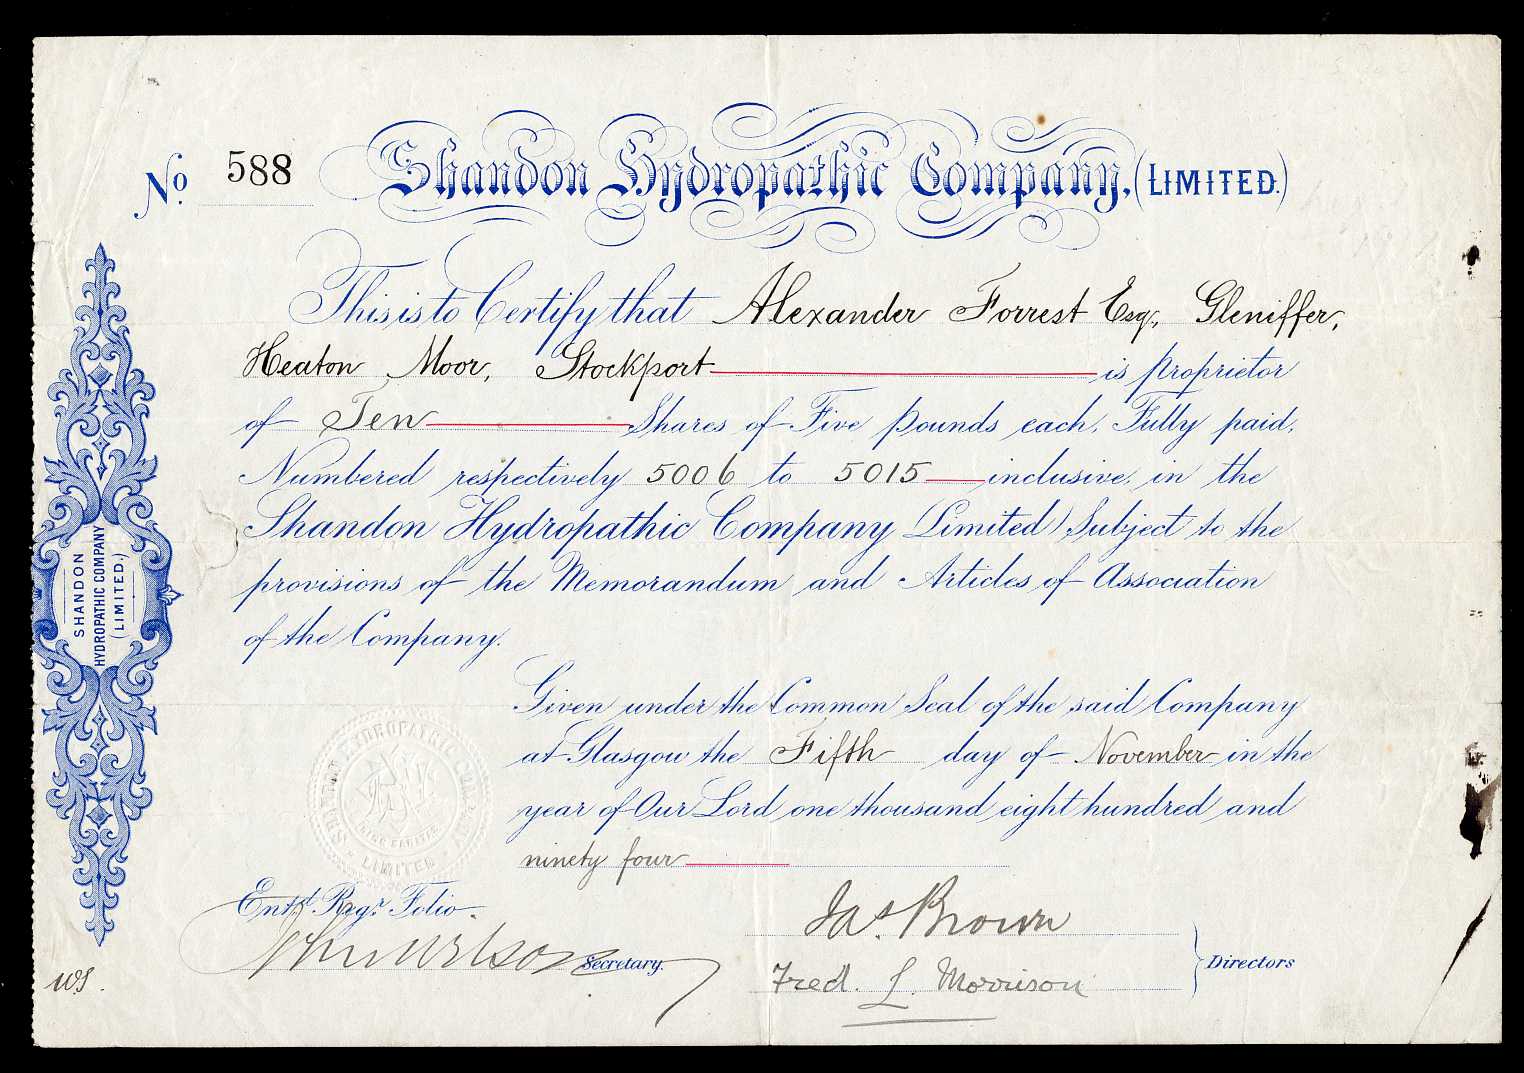 No. 588 Shandon Hydropathic Company, (LIMITED.)
This is to Certify that Alexander Forrest Esq., Gleniffer,
Heaton Moor, Stockport is Proprietor
of Ten Shares of Five Pounds each, Fully paid,
Numbered respectively 5006 to 5015 inclusive, in the
Shandon Hydropathic Company (Limited) Subject to the
provisions of the Memorandum and Articles of Association
of the Company.
SHANDON
HYDROPATHIC COMPANY
(LIMITED.)
Given under the Common Seal of the said Company
at Glasgow the Fifth day of November in the
year of Our Lord one thousand eight hundred and
ninety four
LIMITED
Entd. Regr. Folio
John Wilson Secretary.
Jas. Brown
Fred. L. Morrison
Directors
WS.